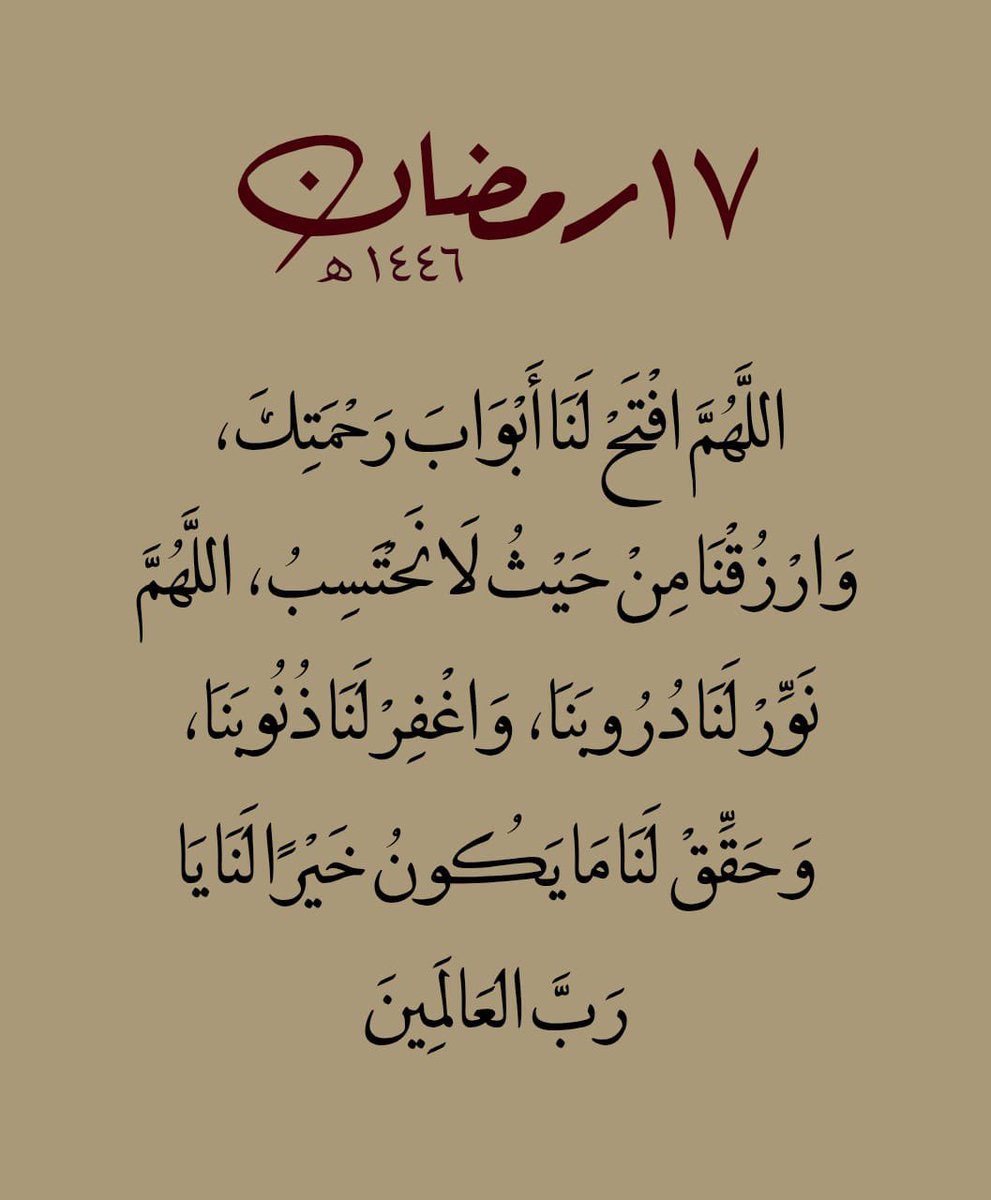 ١٧ رمضان
١٤٤٦ هـ
اللَّهُمَّ افْتَحْ لَنَا أَبْوَابَ رَحْمَتِكَ،
وَارْزُقْنَا مِنْ حَيْثُ لَا نَحْتَسِبُ، اللَّهُمَّ
نَوِّرْ لَنَا دُرُوبَنَا، وَاغْفِرْ لَنَا ذُنُوبَنَا،
وَحَقِّقْ لَنَا مَا يَكُونُ خَيْرًا لَنَا يَا
رَبَّ العَالَمِينَ